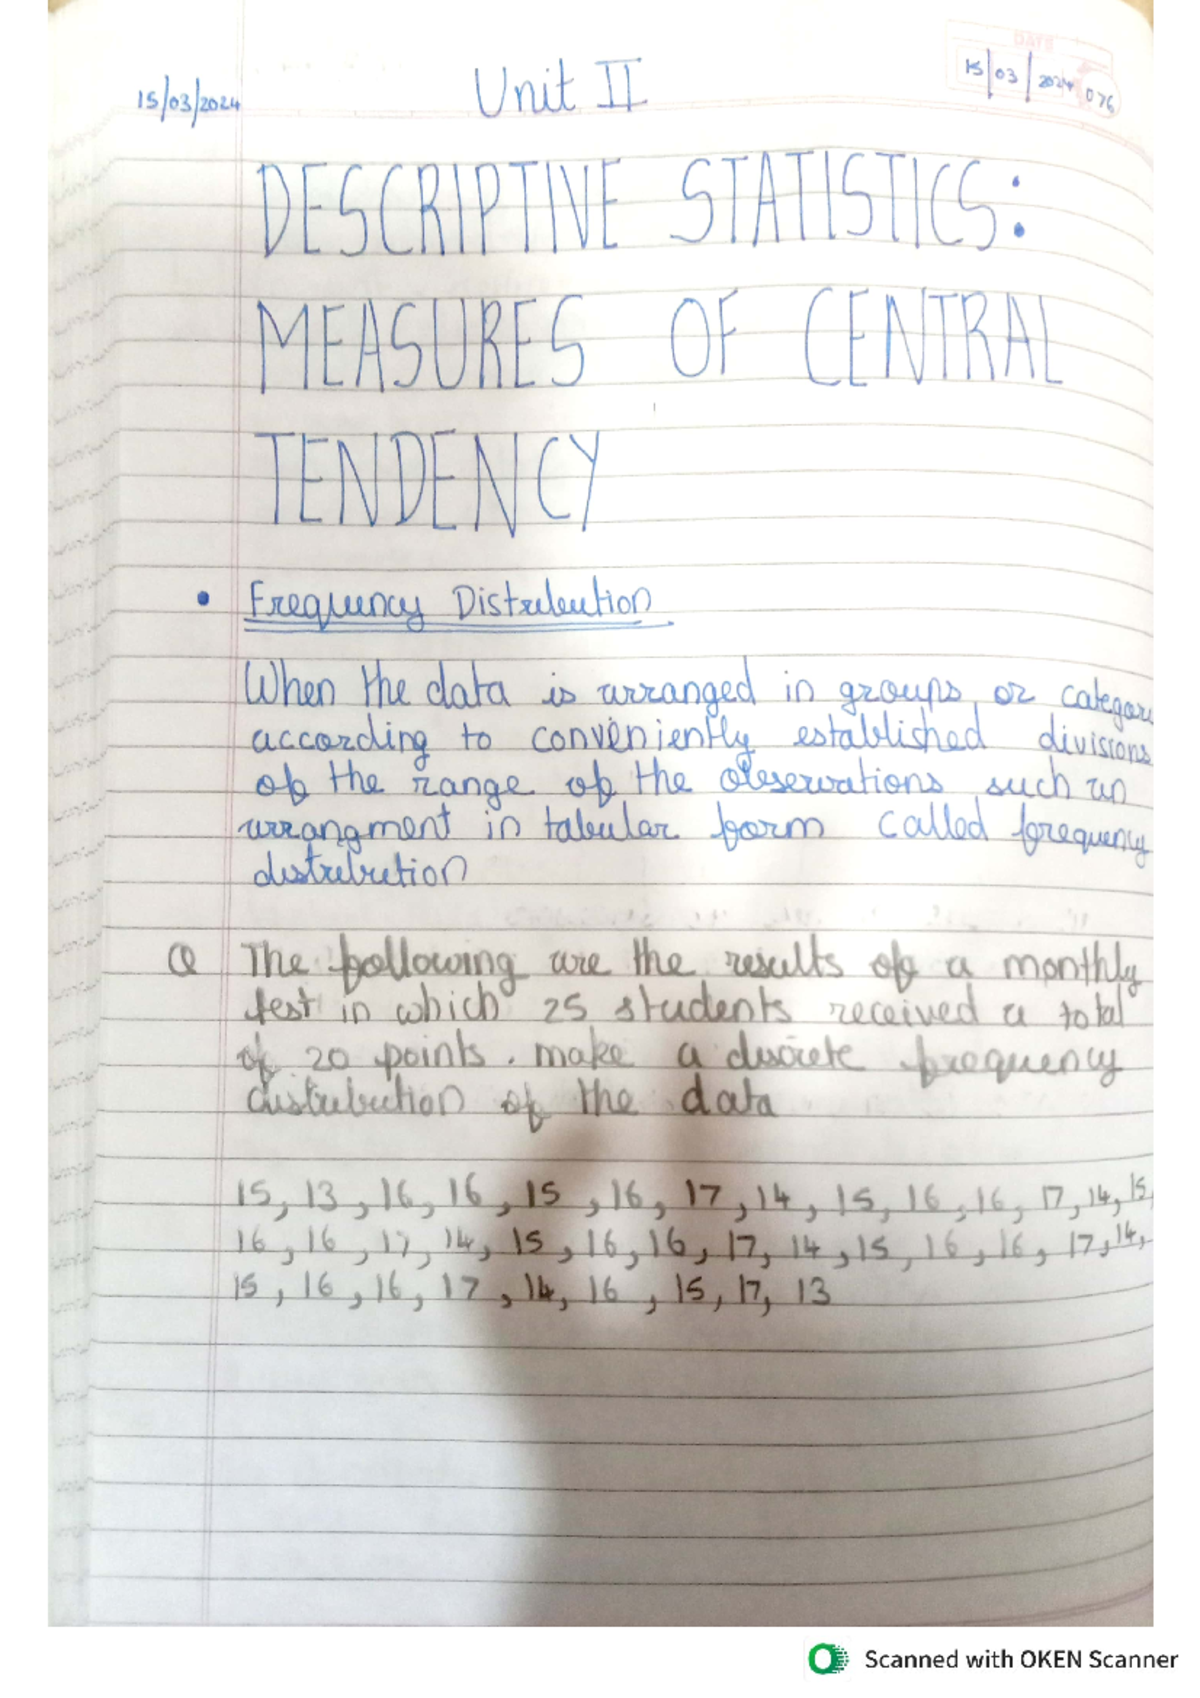 15/03/2024
Unit II
DATE
15/03/2024 076
DESCRIPTIVE STATISTICS:
MEASURES OF CENTRAL
TENDENCY
• Frequency Distribution
When the data is arranged in groups or categori
according to conveniently established divisions
of the range of the observations such an
arrangment in tabular form called frequency
distribution
Q The following are the results of a monthly
test in which 25 students received a total
of 20 points. make a discrete frequency
distribution of the data
15, 13, 16, 16, 15, 16, 17, 14, 15, 16, 16, 17, 14, 15,
16, 16, 17, 14, 15, 16, 16, 17, 14, 15, 16, 16, 17, 14,
15, 16, 16, 17, 14, 16, 15, 17, 13
Scanned with OKEN Scanner